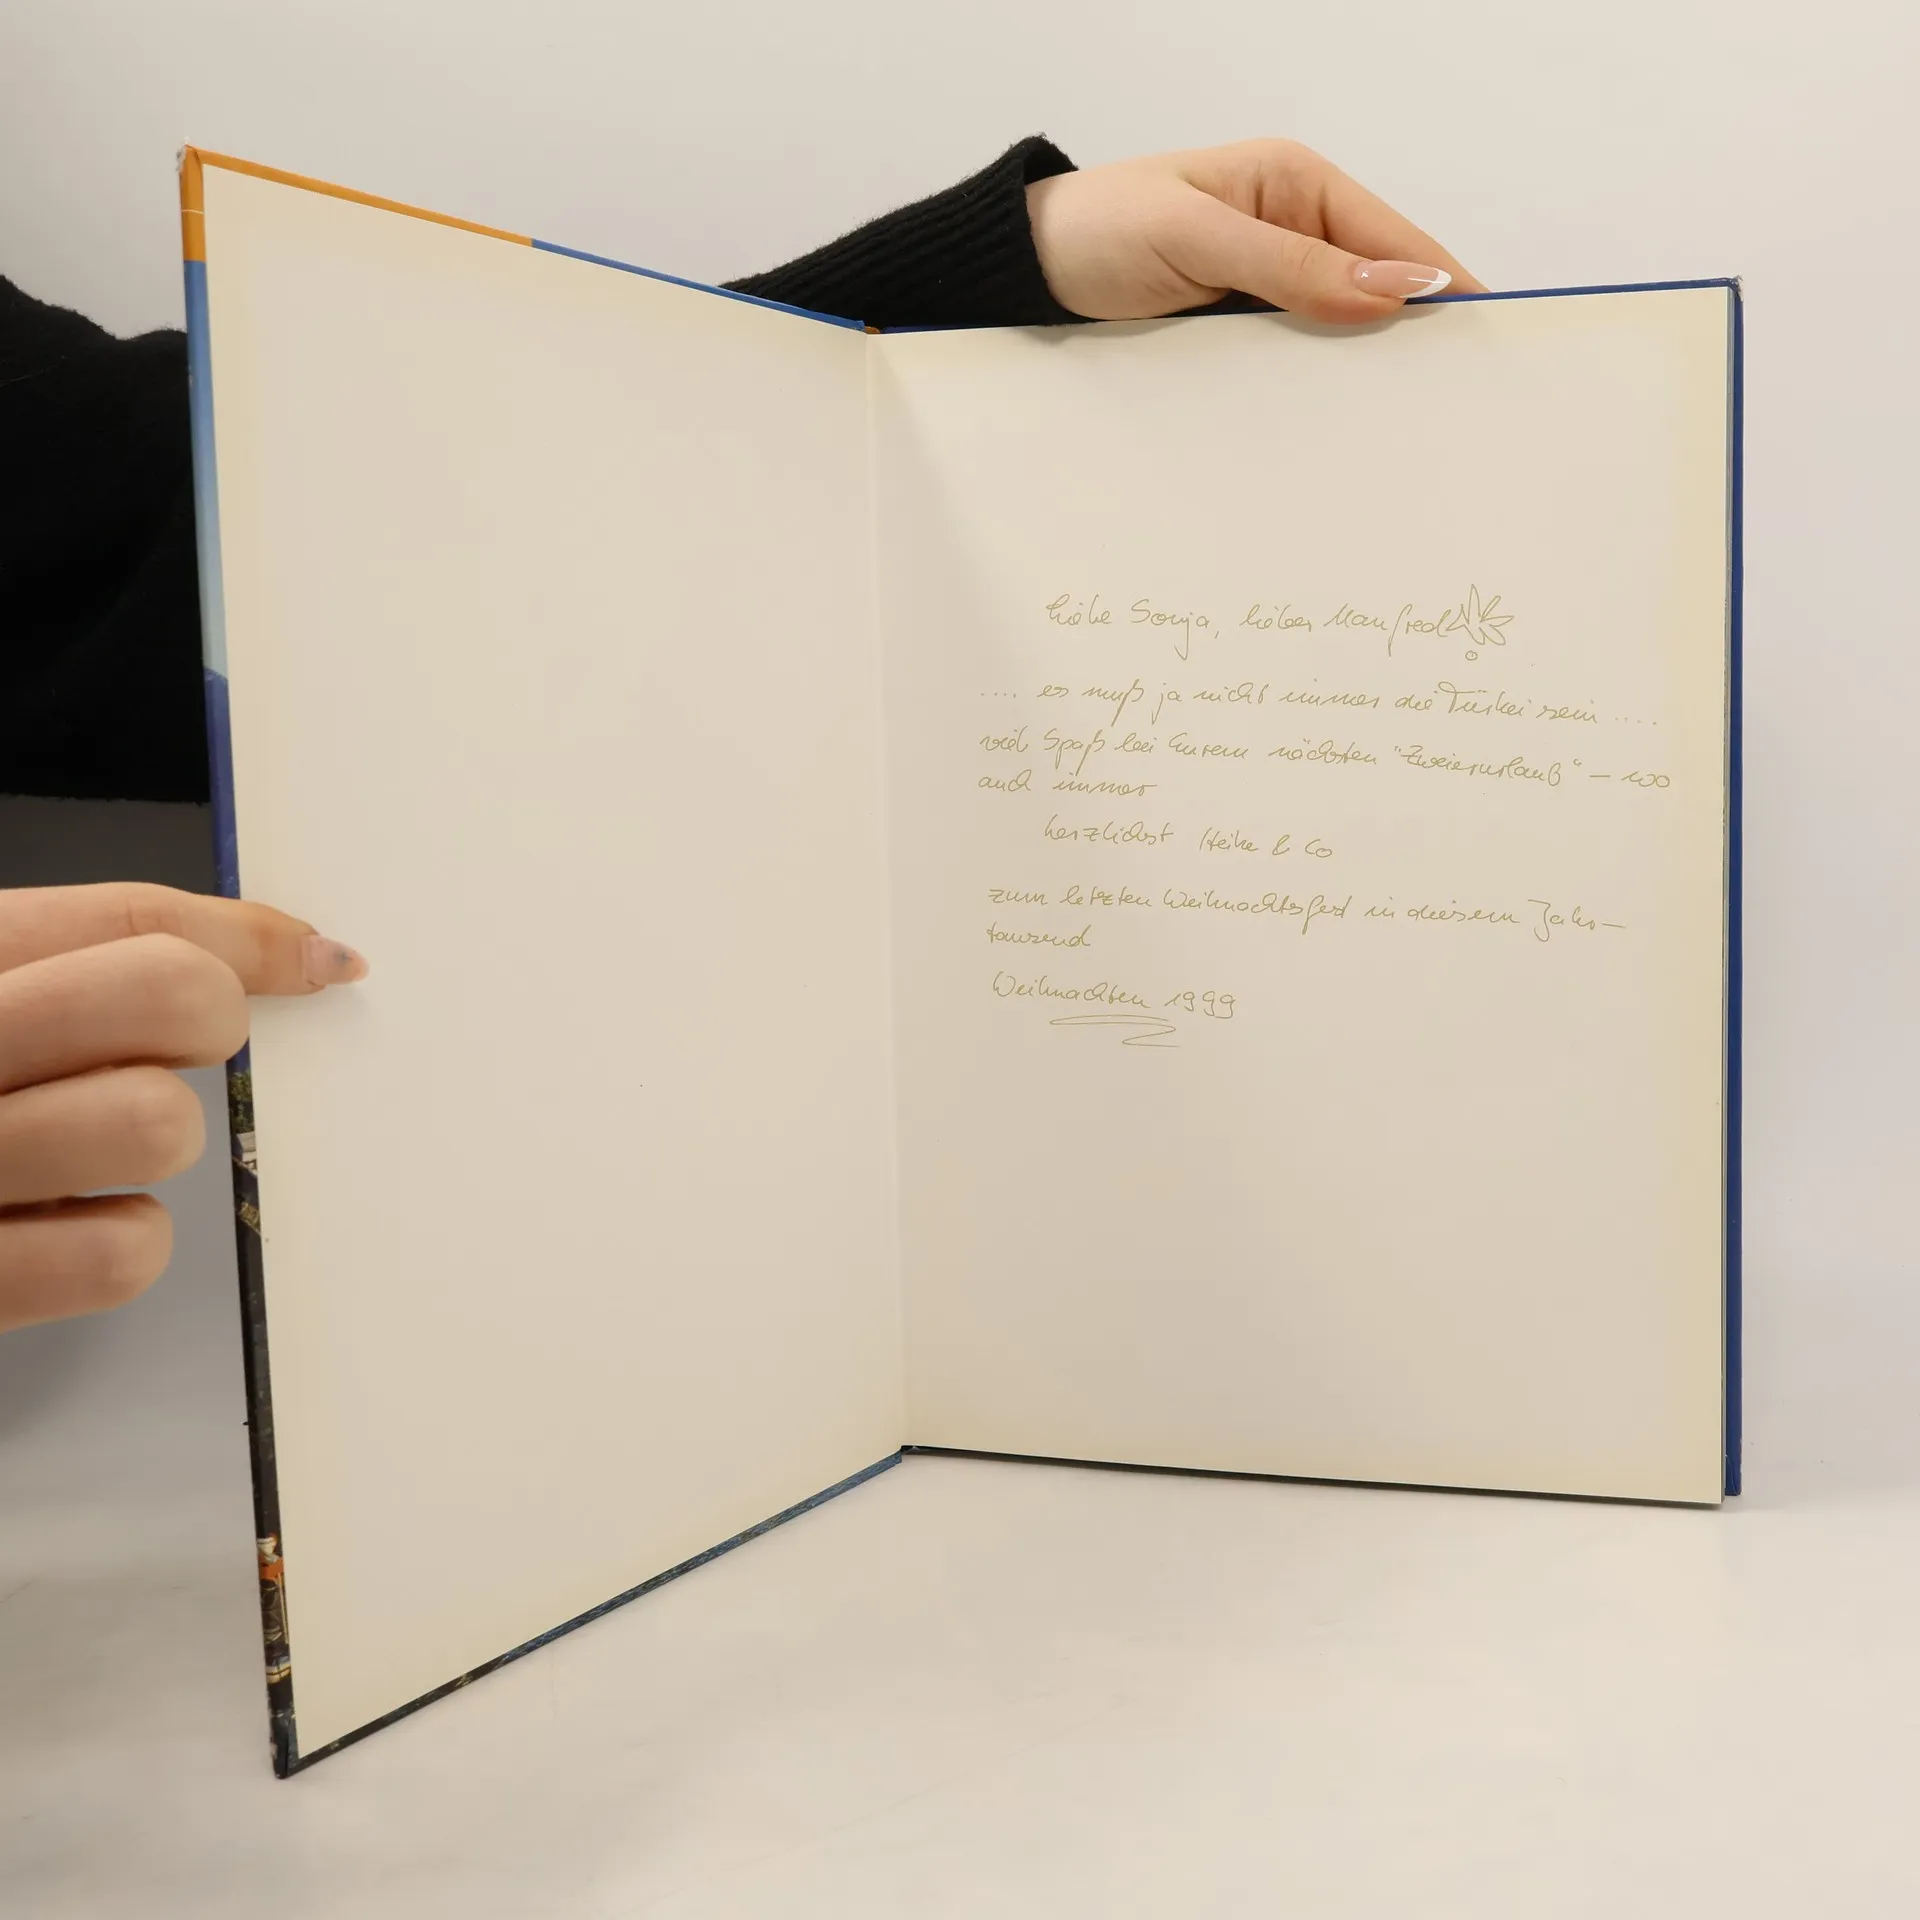 liebe Sonja, lieber Manfred
.... es muß ja nicht immer die Türkei sein ....
viel Spaß bei Eurem nächsten "Zweierurlaub" – wo
auch immer
herzlichst Heike & Co
zum letzten Weihnachtsfest in diesem Jahr-
tausend
Weihnachten 1999